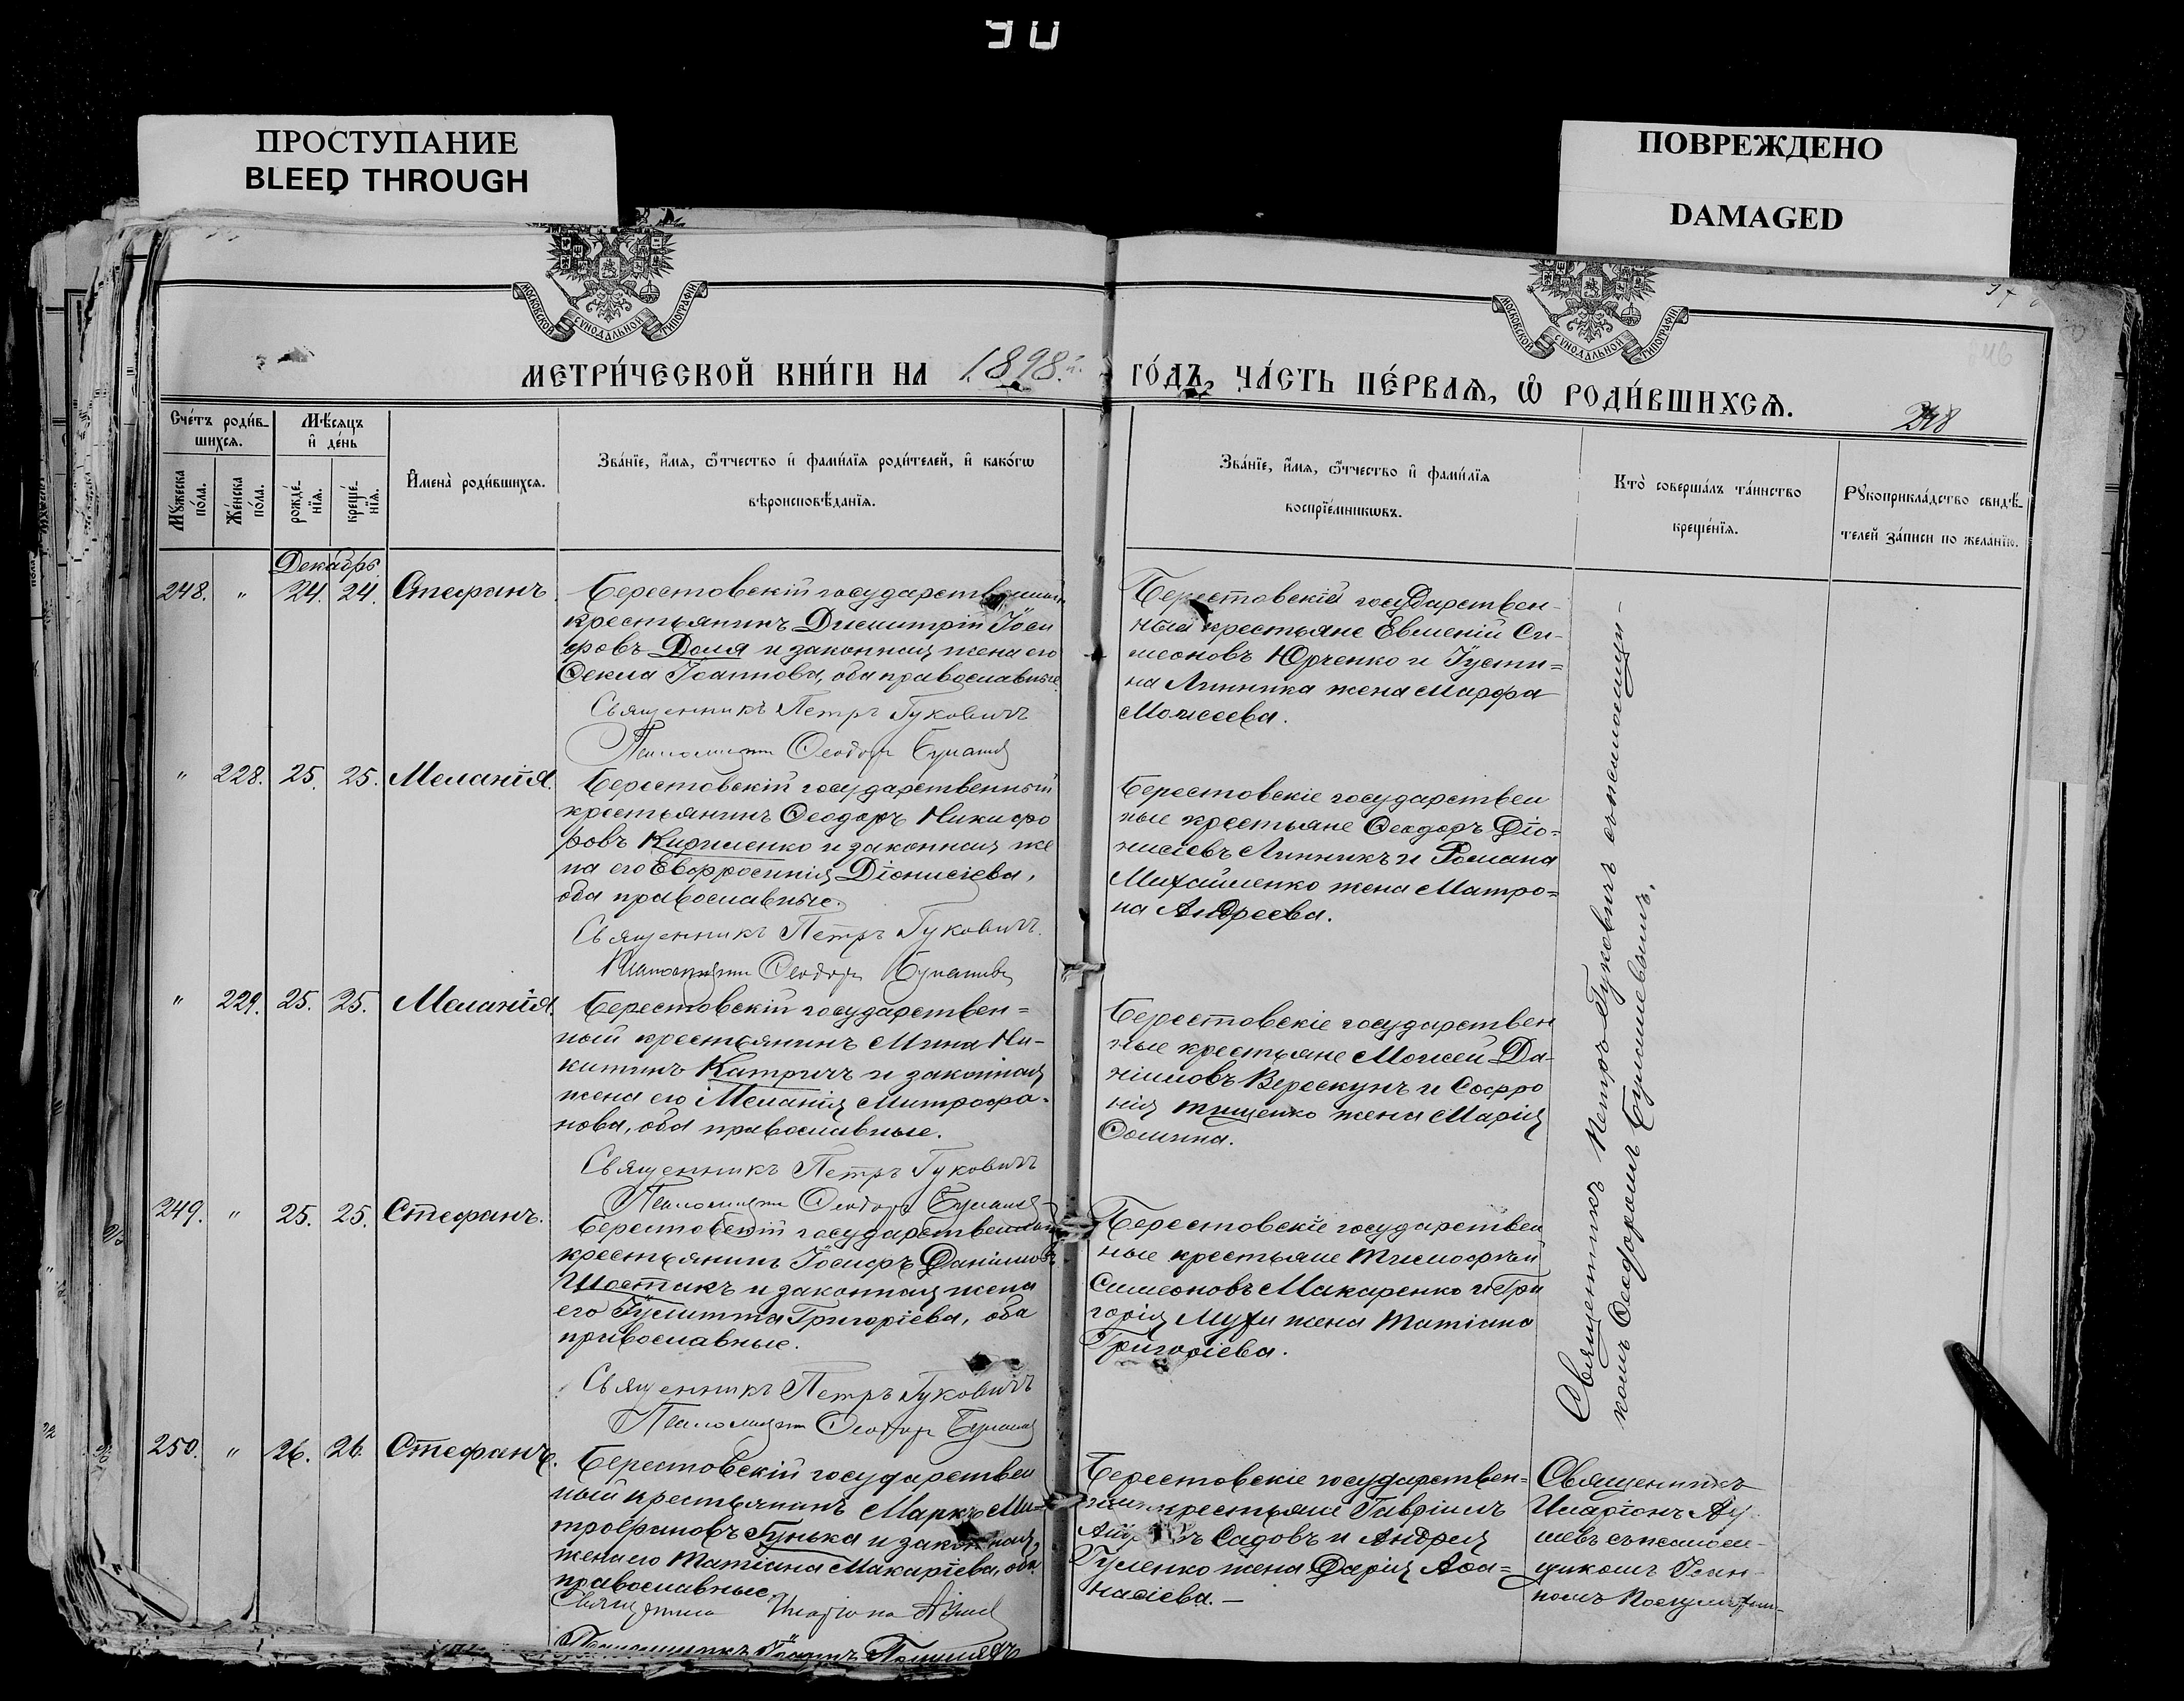 90
ПРОСТУПАНИЕ
BLEED THROUGH
ПОВРЕЖДЕНО
DAMAGED
МОСКОВСКОЙ СУНОДАЛЬНОЙ ТИПОГРАФІИ
МОСКОВСКОЙ СУНОДАЛЬНОЙ ТИПОГРАФІИ
МЕТРИ́ЧЕСКОЙ КНИ́ГИ НА 1898 й.
ГО́ДЪ, ЧА́СТЬ ПЕ́РВАѦ, Ѡ҆ РОДИ́ВШИХСѦ.
Сче́тъ роди́в-
шихсѧ.
Мѣ́сяцъ
и҆ де́нь
Мꙋ́жеска по́ла.
Же́нска по́ла.
рожде́-
нїѧ.
креще́-
нїѧ.
И҆мена̀ роди́вшихсѧ.
Зва́нїе, и҆́мѧ, ѻ҆́тчество и҆ фами́лїѧ роди́телей, и҆ како́гѡ
вѣроисповѣ́данїѧ.
Зва́нїе, и҆́мѧ, ѻ҆́тчество и҆ фами́лїѧ
воспрїе́мникѡвъ.
Кто̀ соверша́лъ та́инство
креще́нїѧ.
Рꙋкоприкла́дство свидѣ́-
телей за́писи по жела́нїю.
Декабрь
248. " 24. 24. Стефанъ.
Берестовскій государственный
крестьянинъ Димитрій Іоси
фовъ Доля и законная жена его
Ѳекла Іоаннова, оба православные.
Священникъ Петръ Гуковичъ
Псаломщикъ Ѳеодоръ
Берестовскіи государствен-
ныи крестьяне Евменій Си-
меоновъ Юрченко и Іусти-
на Линника жена Марфа
Моисеева.
" 228. 25. 25. Меланія.
Берестовскій государственный
крестьянинъ Ѳеодоръ Никифо
ровъ Кириленко и законная же
на его Евфросинія Діонисіева,
оба православные.
Священникъ Петръ Гуковичъ.
Псаломщикъ Ѳеодоръ
Берестовскіе государствен
ные крестьяне Ѳеодоръ Діо-
нисіевъ Линникъ и Романа
Михайленко жена Матро-
на Андреева.
" 229. 25. 25. Меланія.
Берестовскій государствен-
ный крестьянинъ Мина Ни-
китинъ Катричъ и законная
жена его Меланія Митрофа-
нова, оба православные.
Священникъ Петръ Гуковичъ
Псаломщикъ Ѳеодоръ
Берестовскіе государствен
ные крестьяне Моисей Да-
ніиловъ Верескунъ и Софро
нія Тищенко жена Марія
Ѳомина.
249. " 25. 25. Стефанъ.
Берестовскій государственный
крестьянинъ Іосифъ Даніиловъ
Шостакъ и законная жена
его Іулитта Григоріева, оба
православные.
Священникъ Петръ Гуковичъ
Псаломщикъ Ѳеодоръ
Берестовскіе государствен
ные крестьяне Тимофей
Симеоновъ Макаренко и Гри
горія Мухи жена Татіана
Григоріева.
Священникъ Петръ Гуковичъ съ псаломщи-
комъ Ѳеодоромъ
250. " 26. 26. Стефанъ.
Берестовскій государствен
ный крестьянинъ Маркъ Ми-
трофановъ Гунька и законная
жена его Татіана Макаріева, оба
православные.
Священникъ Иларіонъ
Псаломщикъ Іоаннъ
Берестовскіе государствен-
ные крестьяне Гавріилъ
Садовъ и Андрея
Гуленко жена Дарія Аѳа-
насіева.-
Священникъ
Иларіонъ
съ псалом-
щикомъ Іоан-
номъ